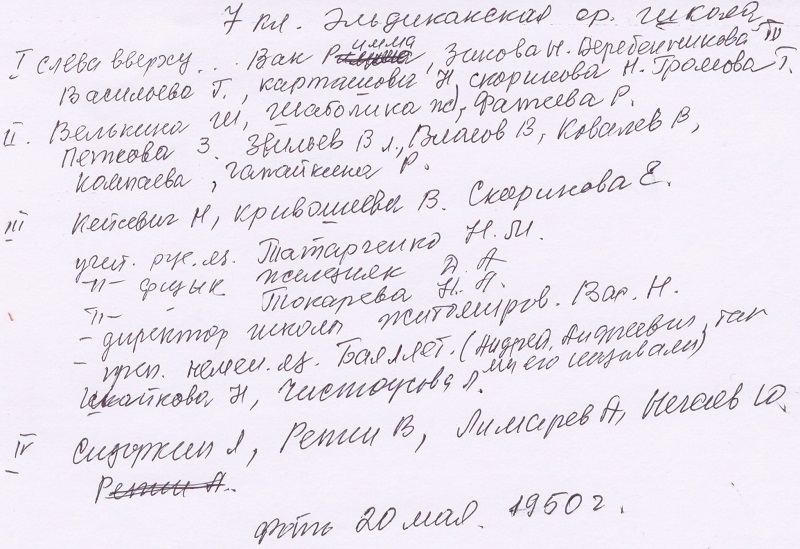 7 кл. Эльдиканская ср. школа
I слева вверху .. Вак Римма, Зинова Н. Деребенчикова III
Васильева Т., Карташова Н, Скоринова Н. Громова Т.
II. Велькина Ш, Шаболина ж), Фатеева Р.
Петкова З. Звильев Вл., Власов В, Ковалев В,
Компаева, Чапайкина Р.
III Кейзевич Н, Кривошеева В. Скоринова Е.
учит. рус. яз. Татарченко Н. М.
-"- физик Железняк Д. А
-"- Токарева Н. А.
- директор школы Житомиров. Вар. Н.
- преп. немец. яз. Баллет. (Андрей Андреевич, так
мы его называли)
Шайкова Н, Чистоусова Л.
IV Сизоркин Л, Репин В, Лимарев А, Нечаев Ю.
Репин А.
фото 20 мая. 1950 г.